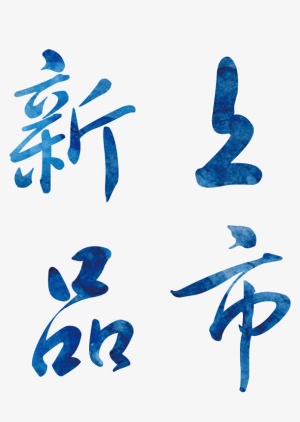 新品
上市